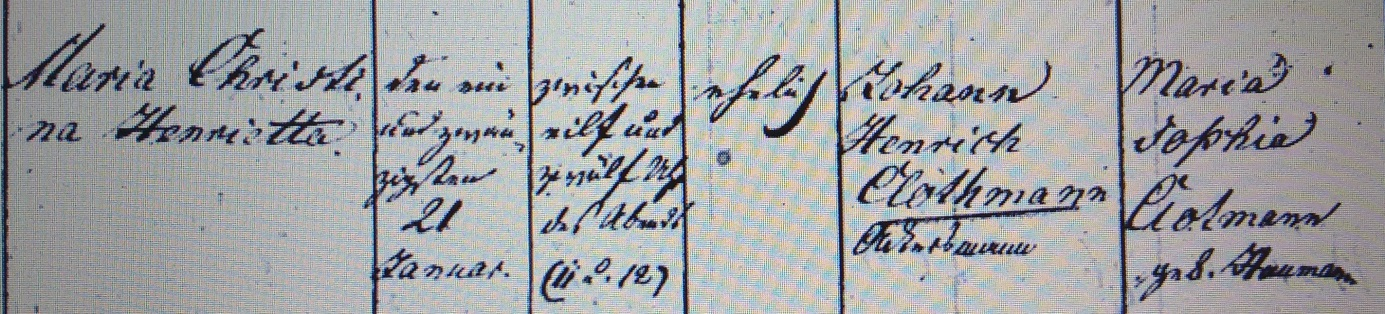 Maria Christi
na Henrietta.
den ein
und zwän
zigsten
21
Januar.
zwischen
eilf und
zwölf Uhr
des Abends
(11 2. 12)
ehelich
Johann
Henrich
Clothmann
Ackersmann
Maria
Sophia
Clotmann
geb. Naumann